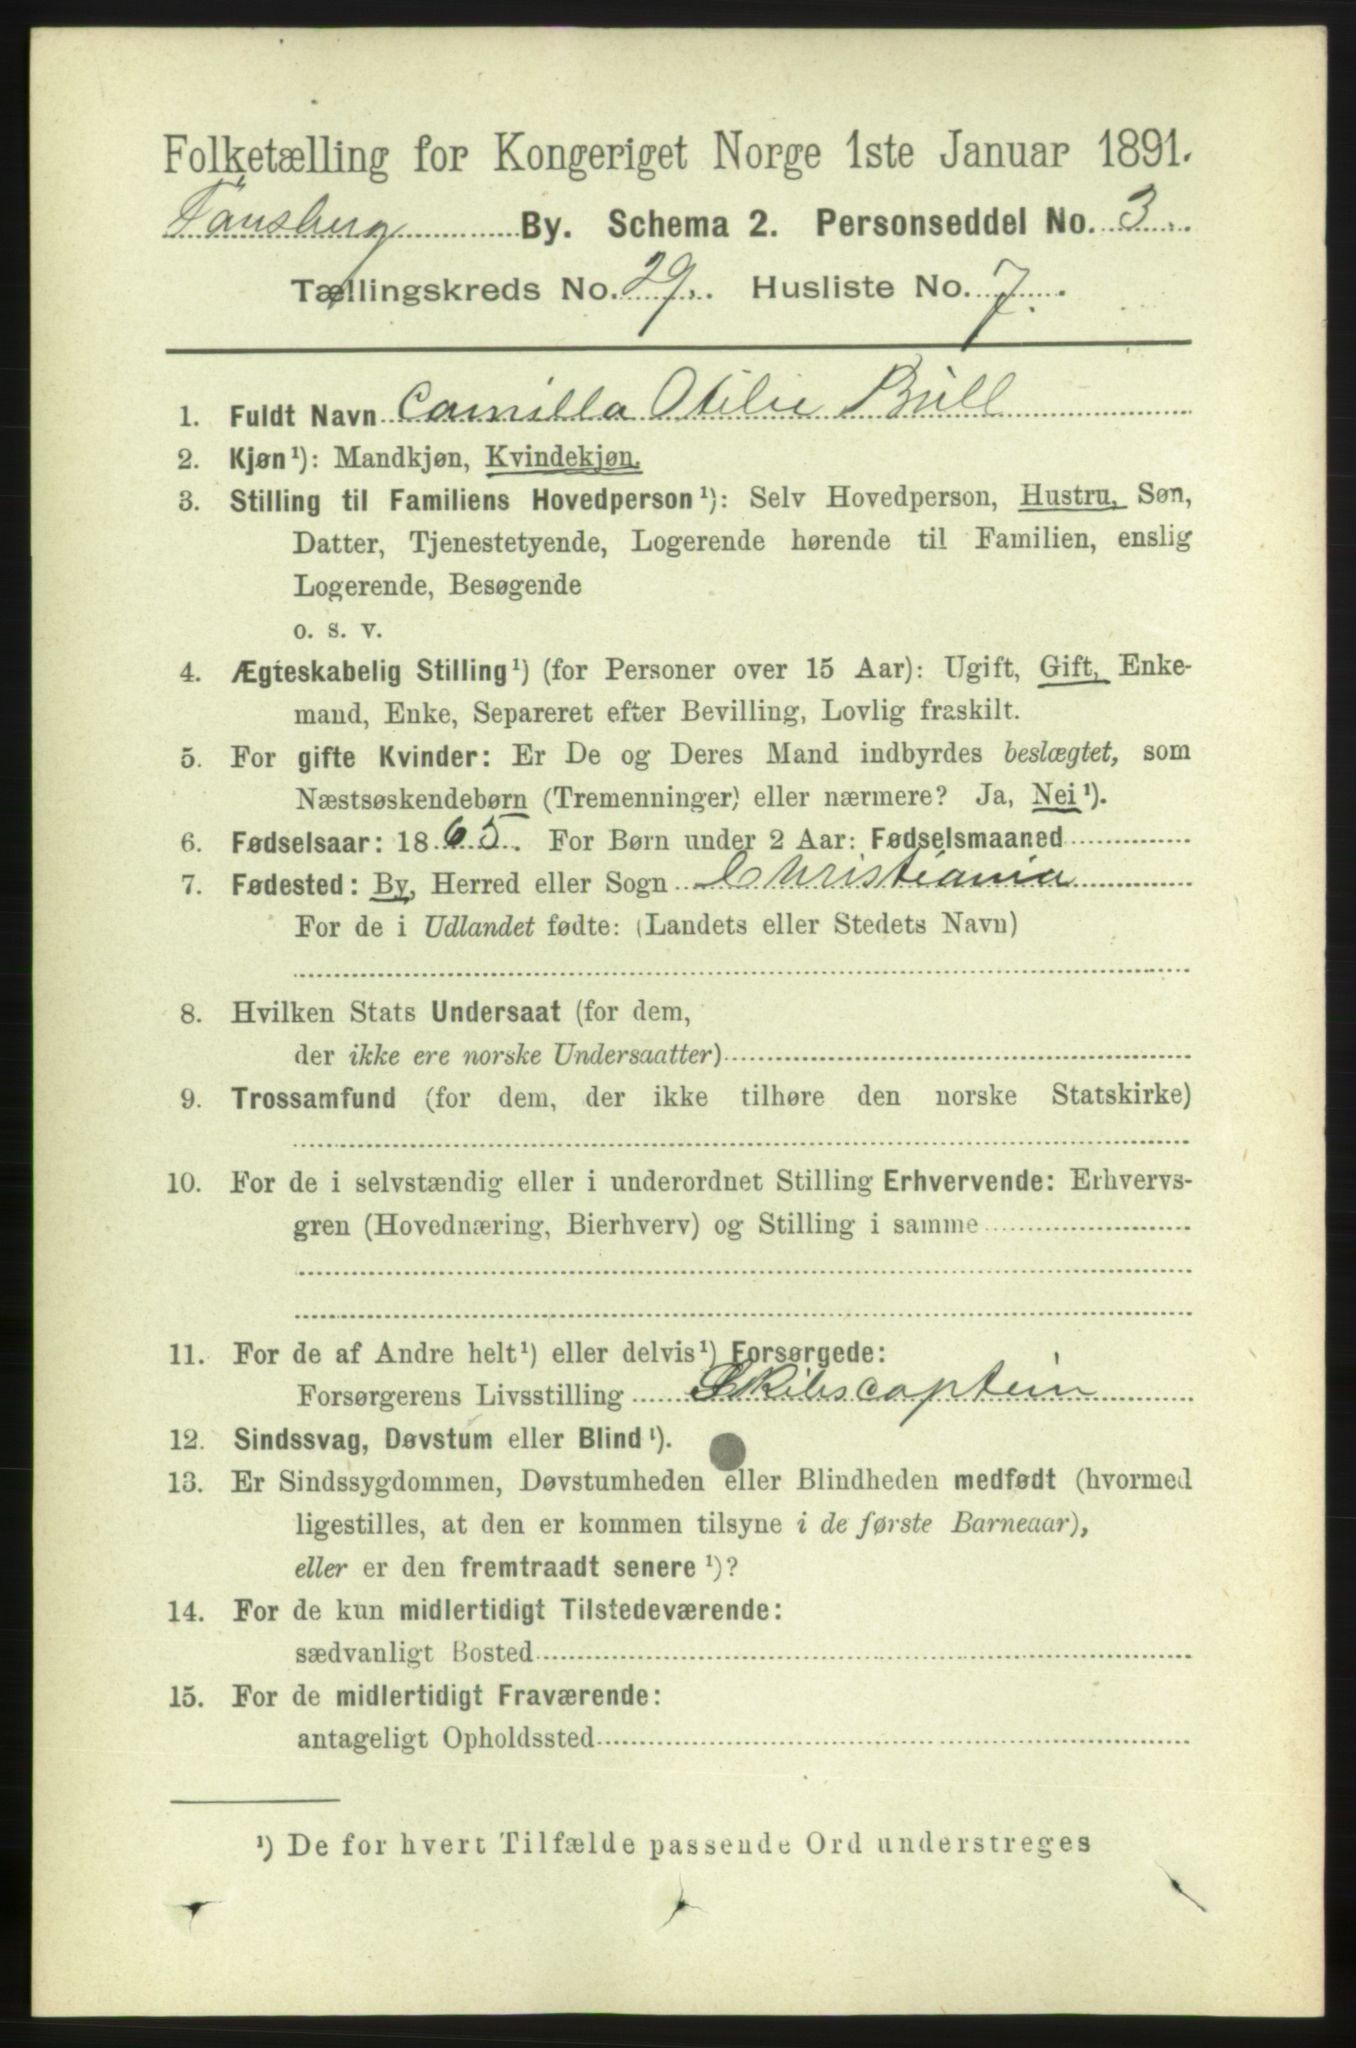 Folketælling for Kongeriget Norge 1ste Januar 1891.
Tønsberg By. Schema 2. Personseddel No. 3.
Tællingskreds No. 29. Husliste No. 7.
1. Fuldt Navn Camilla Otilie Bull
2. Kjøn¹): Mandkjøn, Kvindekjøn.
3. Stilling til Familiens Hovedperson¹): Selv Hovedperson, Hustru, Søn,
Datter, Tjenestetyende, Logerende hørende til Familien, enslig
Logerende, Besøgende
o. s. v.
4. Ægteskabelig Stilling¹) (for Personer over 15 Aar): Ugift, Gift, Enke-
mand, Enke, Separeret efter Bevilling, Lovlig fraskilt.
5. For gifte Kvinder: Er De og Deres Mand indbyrdes beslægtet, som
Næstsøskendebørn (Tremenninger) eller nærmere? Ja, Nei¹).
6. Fødselsaar: 1865. For Børn under 2 Aar: Fødselsmaaned
7. Fødested: By, Herred eller Sogn Christiania
For de i Udlandet fødte: (Landets eller Stedets Navn)
8. Hvilken Stats Undersaat (for dem,
der ikke ere norske Undersaatter)
9. Trossamfund (for dem, der ikke tilhøre den norske Statskirke)
10. For de i selvstændig eller i underordnet Stilling Erhvervende: Erhvervs-
gren (Hovednæring, Bierhverv) og Stilling i samme
11. For de af Andre helt¹) eller delvis¹) Forsørgede:
Forsørgerens Livsstilling Skibscaptein
12. Sindssvag, Døvstum eller Blind¹).
13. Er Sindssygdommen, Døvstumheden eller Blindheden medfødt (hvormed
ligestilles, at den er kommen tilsyne i de første Barneaar),
eller er den fremtraadt senere¹)?
14. For de kun midlertidigt Tilstedeværende:
sædvanligt Bosted
15. For de midlertidigt Fraværende:
antageligt Opholdssted
¹) De for hvert Tilfælde passende Ord understreges